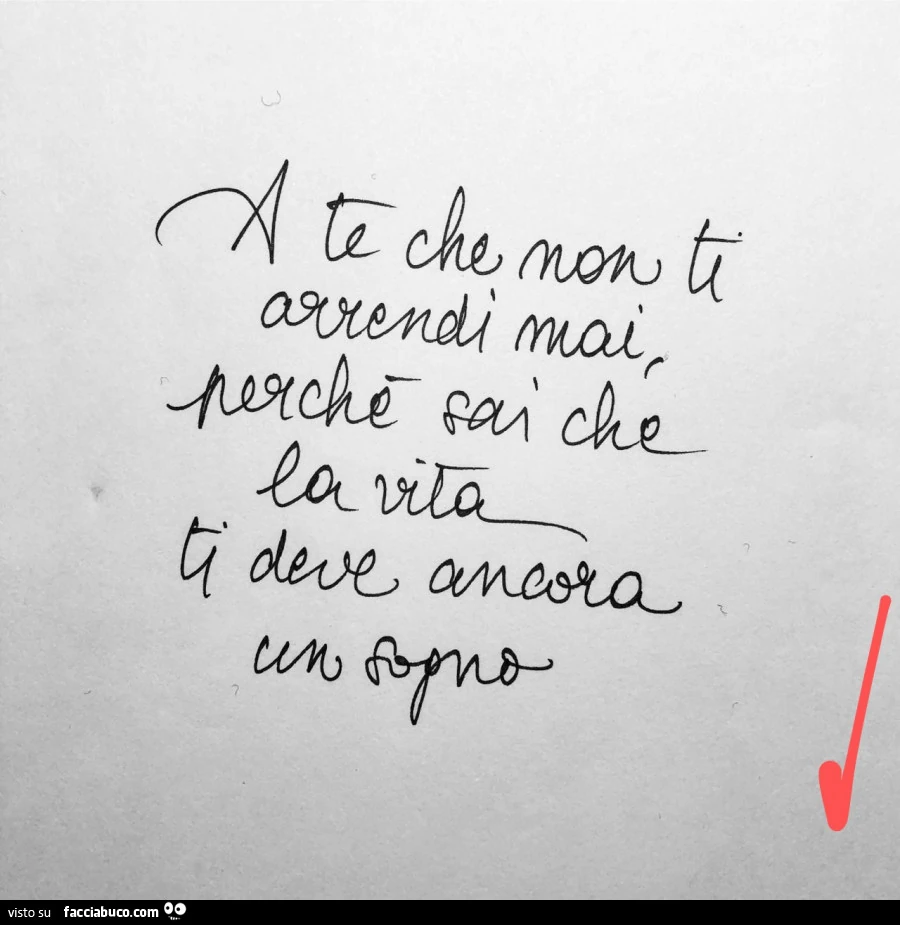 A te che non ti
arrendi mai,
perchē sai che
la vita
ti deve ancora
un sogno
visto su facciabuco.com